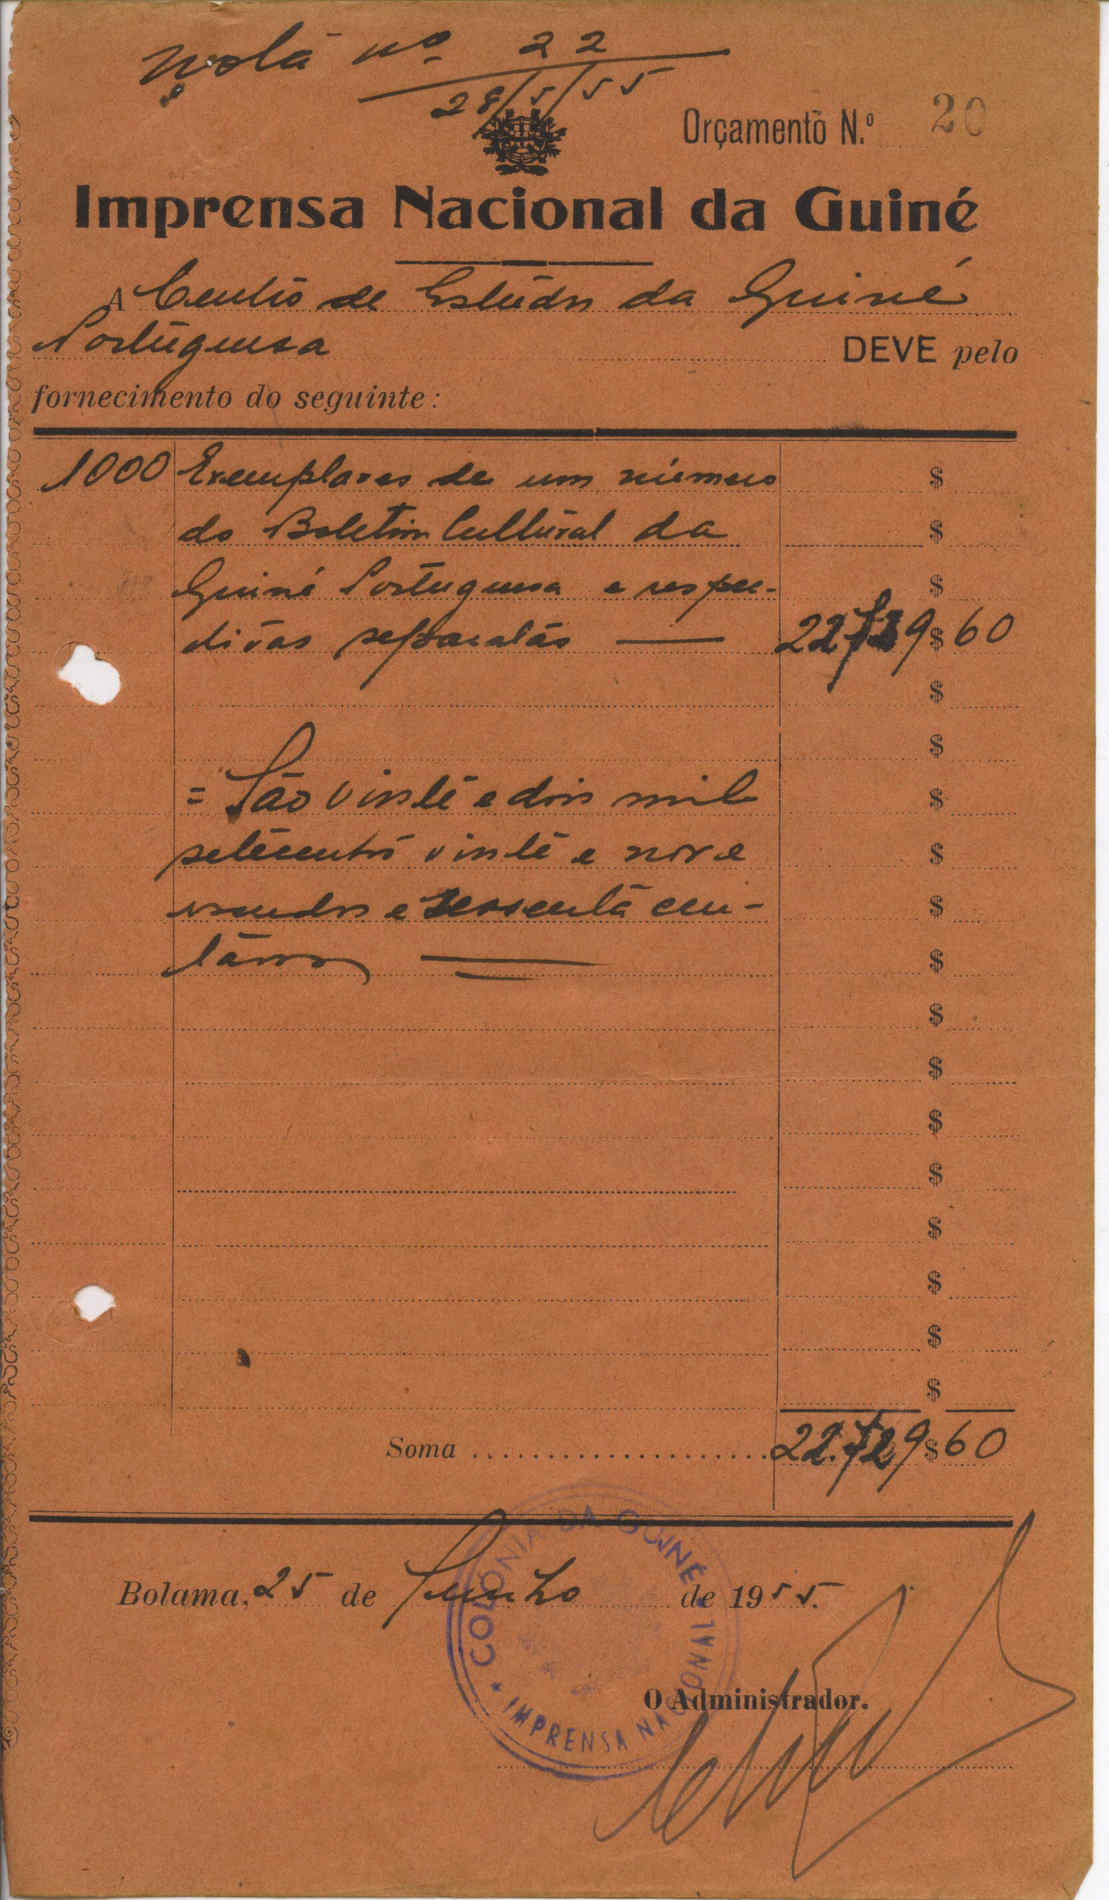 Nota nº 22
28/5/55
Orçamento N.º 20
Imprensa Nacional da Guiné
A Centro de Estudos da Guiné
Portuguesa DEVE pelo
fornecimento do seguinte:
1000 Exemplares de um número $
do Boletim Cultural da $
Guiné Portuguesa e respec- $
tivas separatas — 22.729$60
$
$
= São vinte e dois mil $
setecentos vinte e nove $
escudos e sessenta cen- $
tavos $
$
$
$
$
$
$
$
$
Soma 22.729$60
Bolama, 25 de Junho de 1955.
COLÓNIA DA GUINÉ
* IMPRENSA NACIONAL
O Administrador.